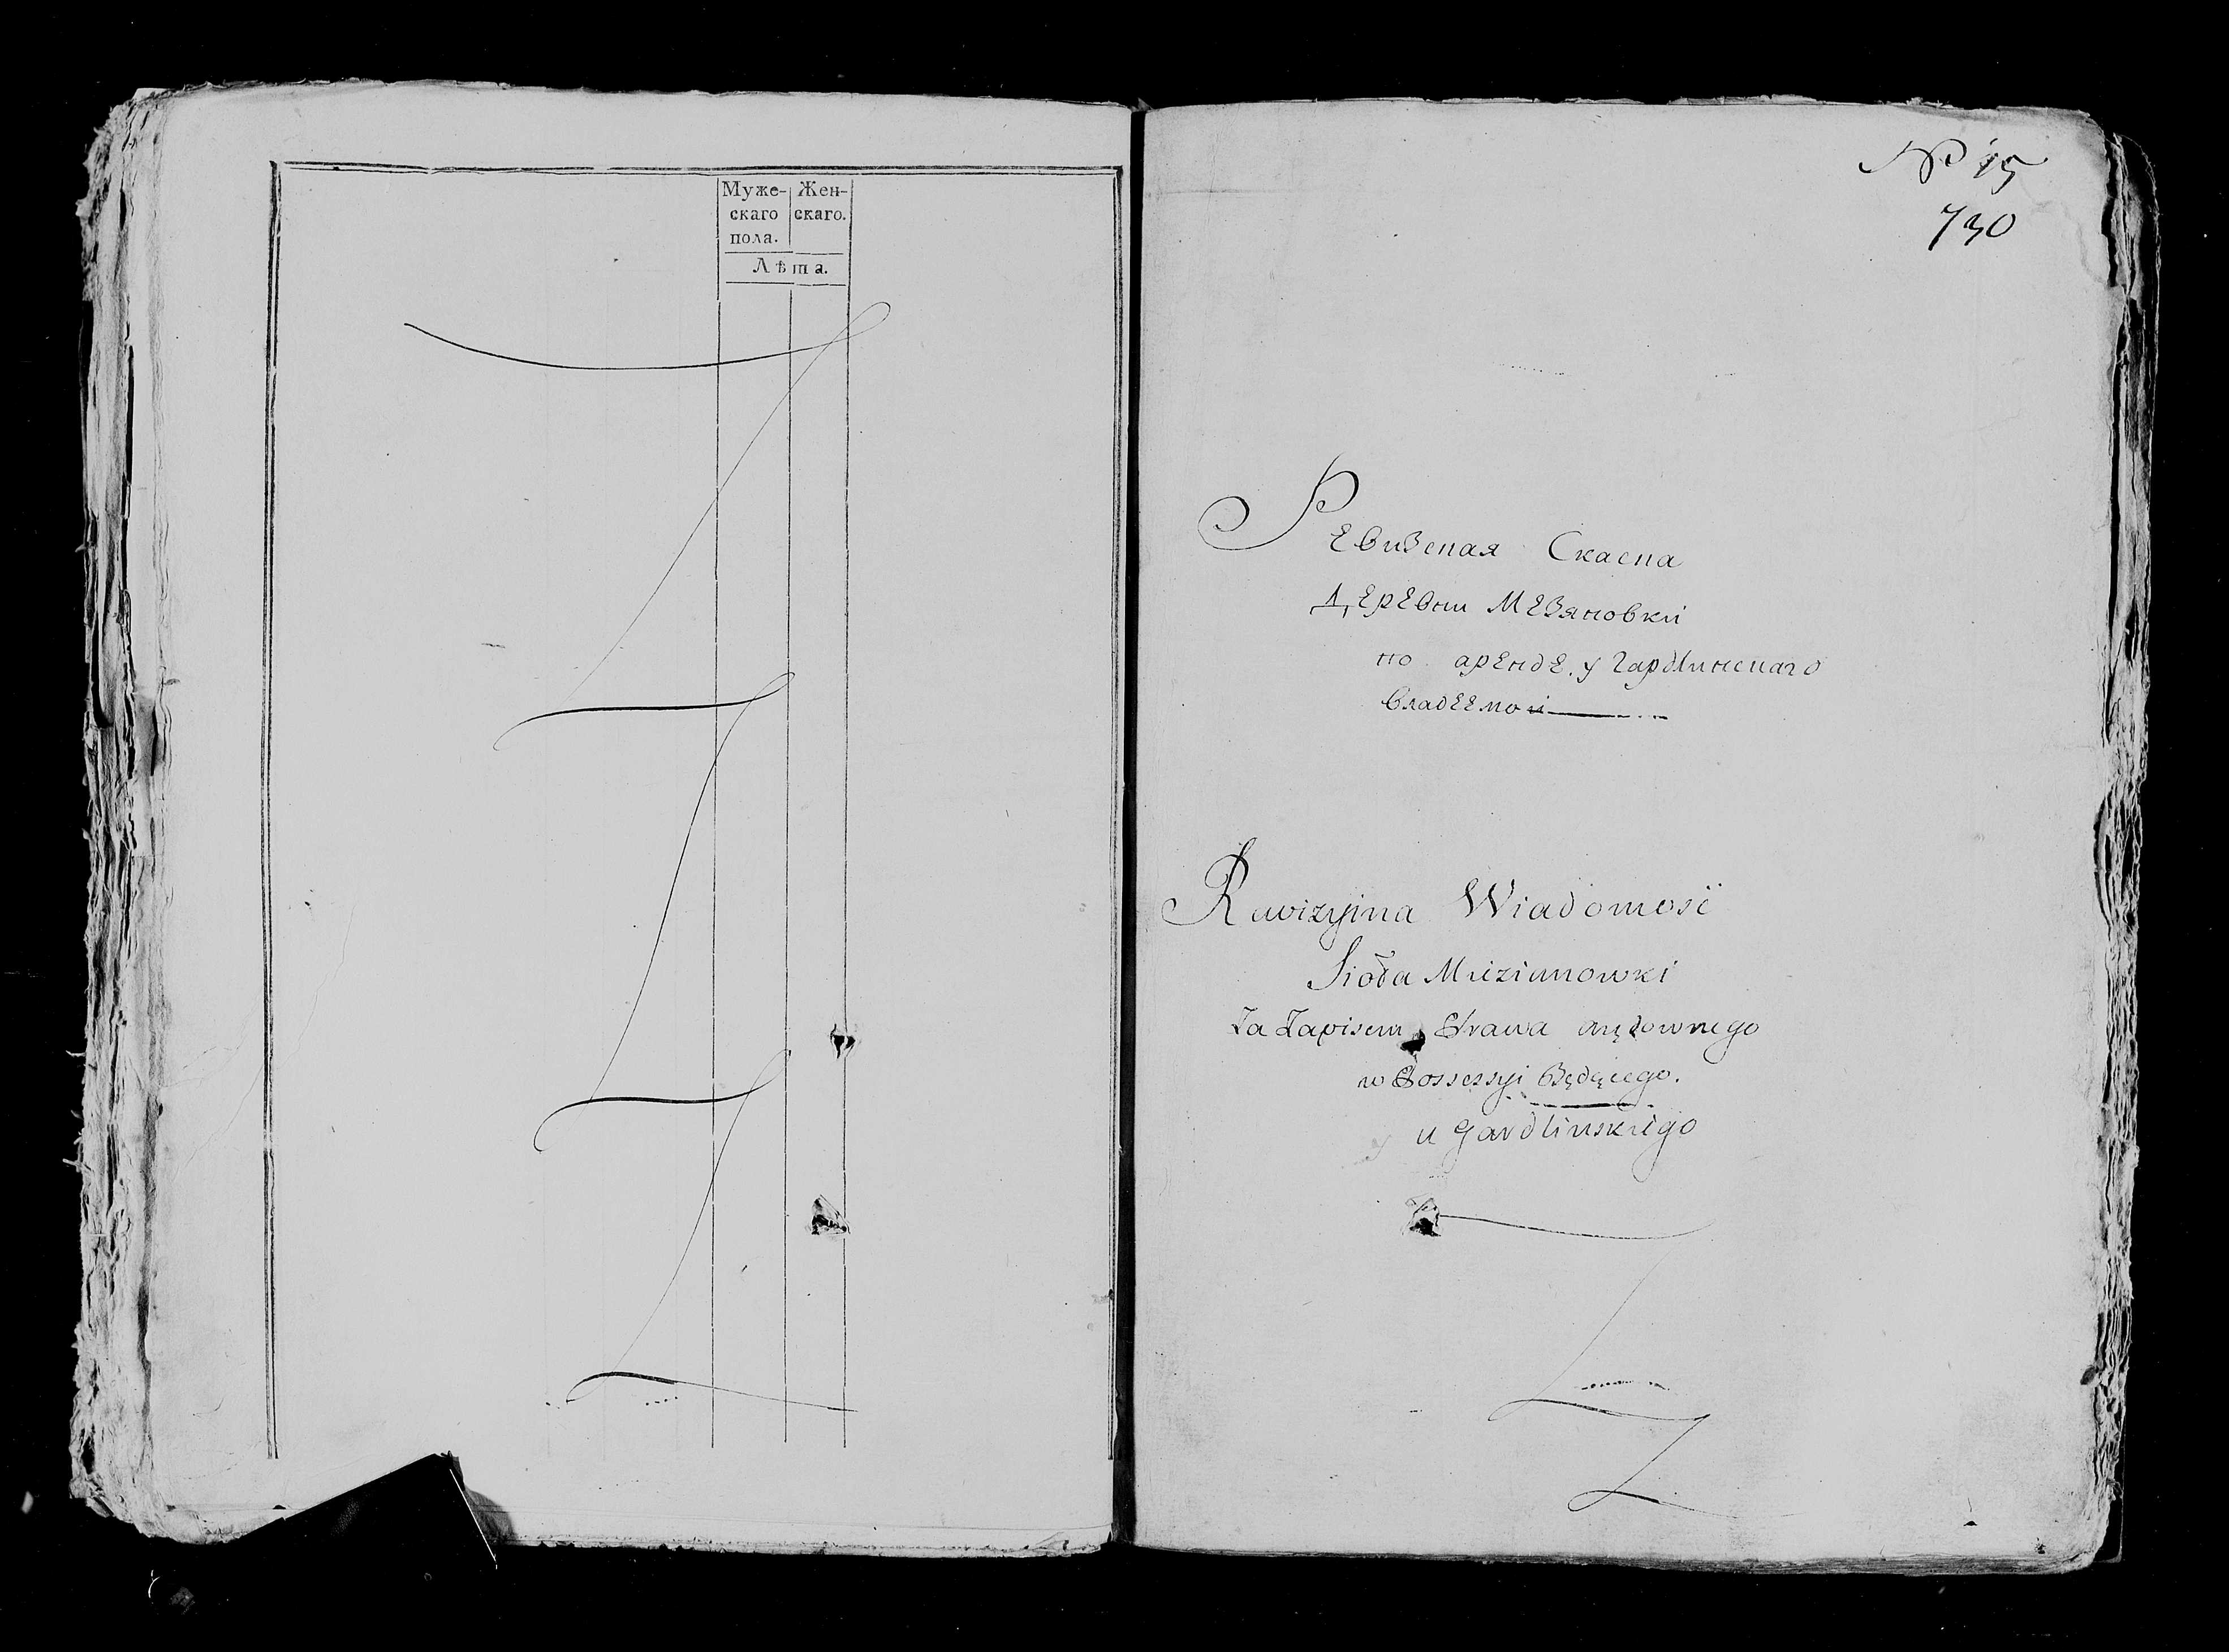 Муже- Жен-
скаго скаго.
пола.
Лѣта.
№ 15
730
Ревизская Скаска
деревни Мезяновки
по аренде у Гардлинскаго
владеемой
Rewizyina Wiadomość
Sioła Miezianowki
Za Zapisem Prawa
w Possessyi Będącego.
u Gardlinskiego